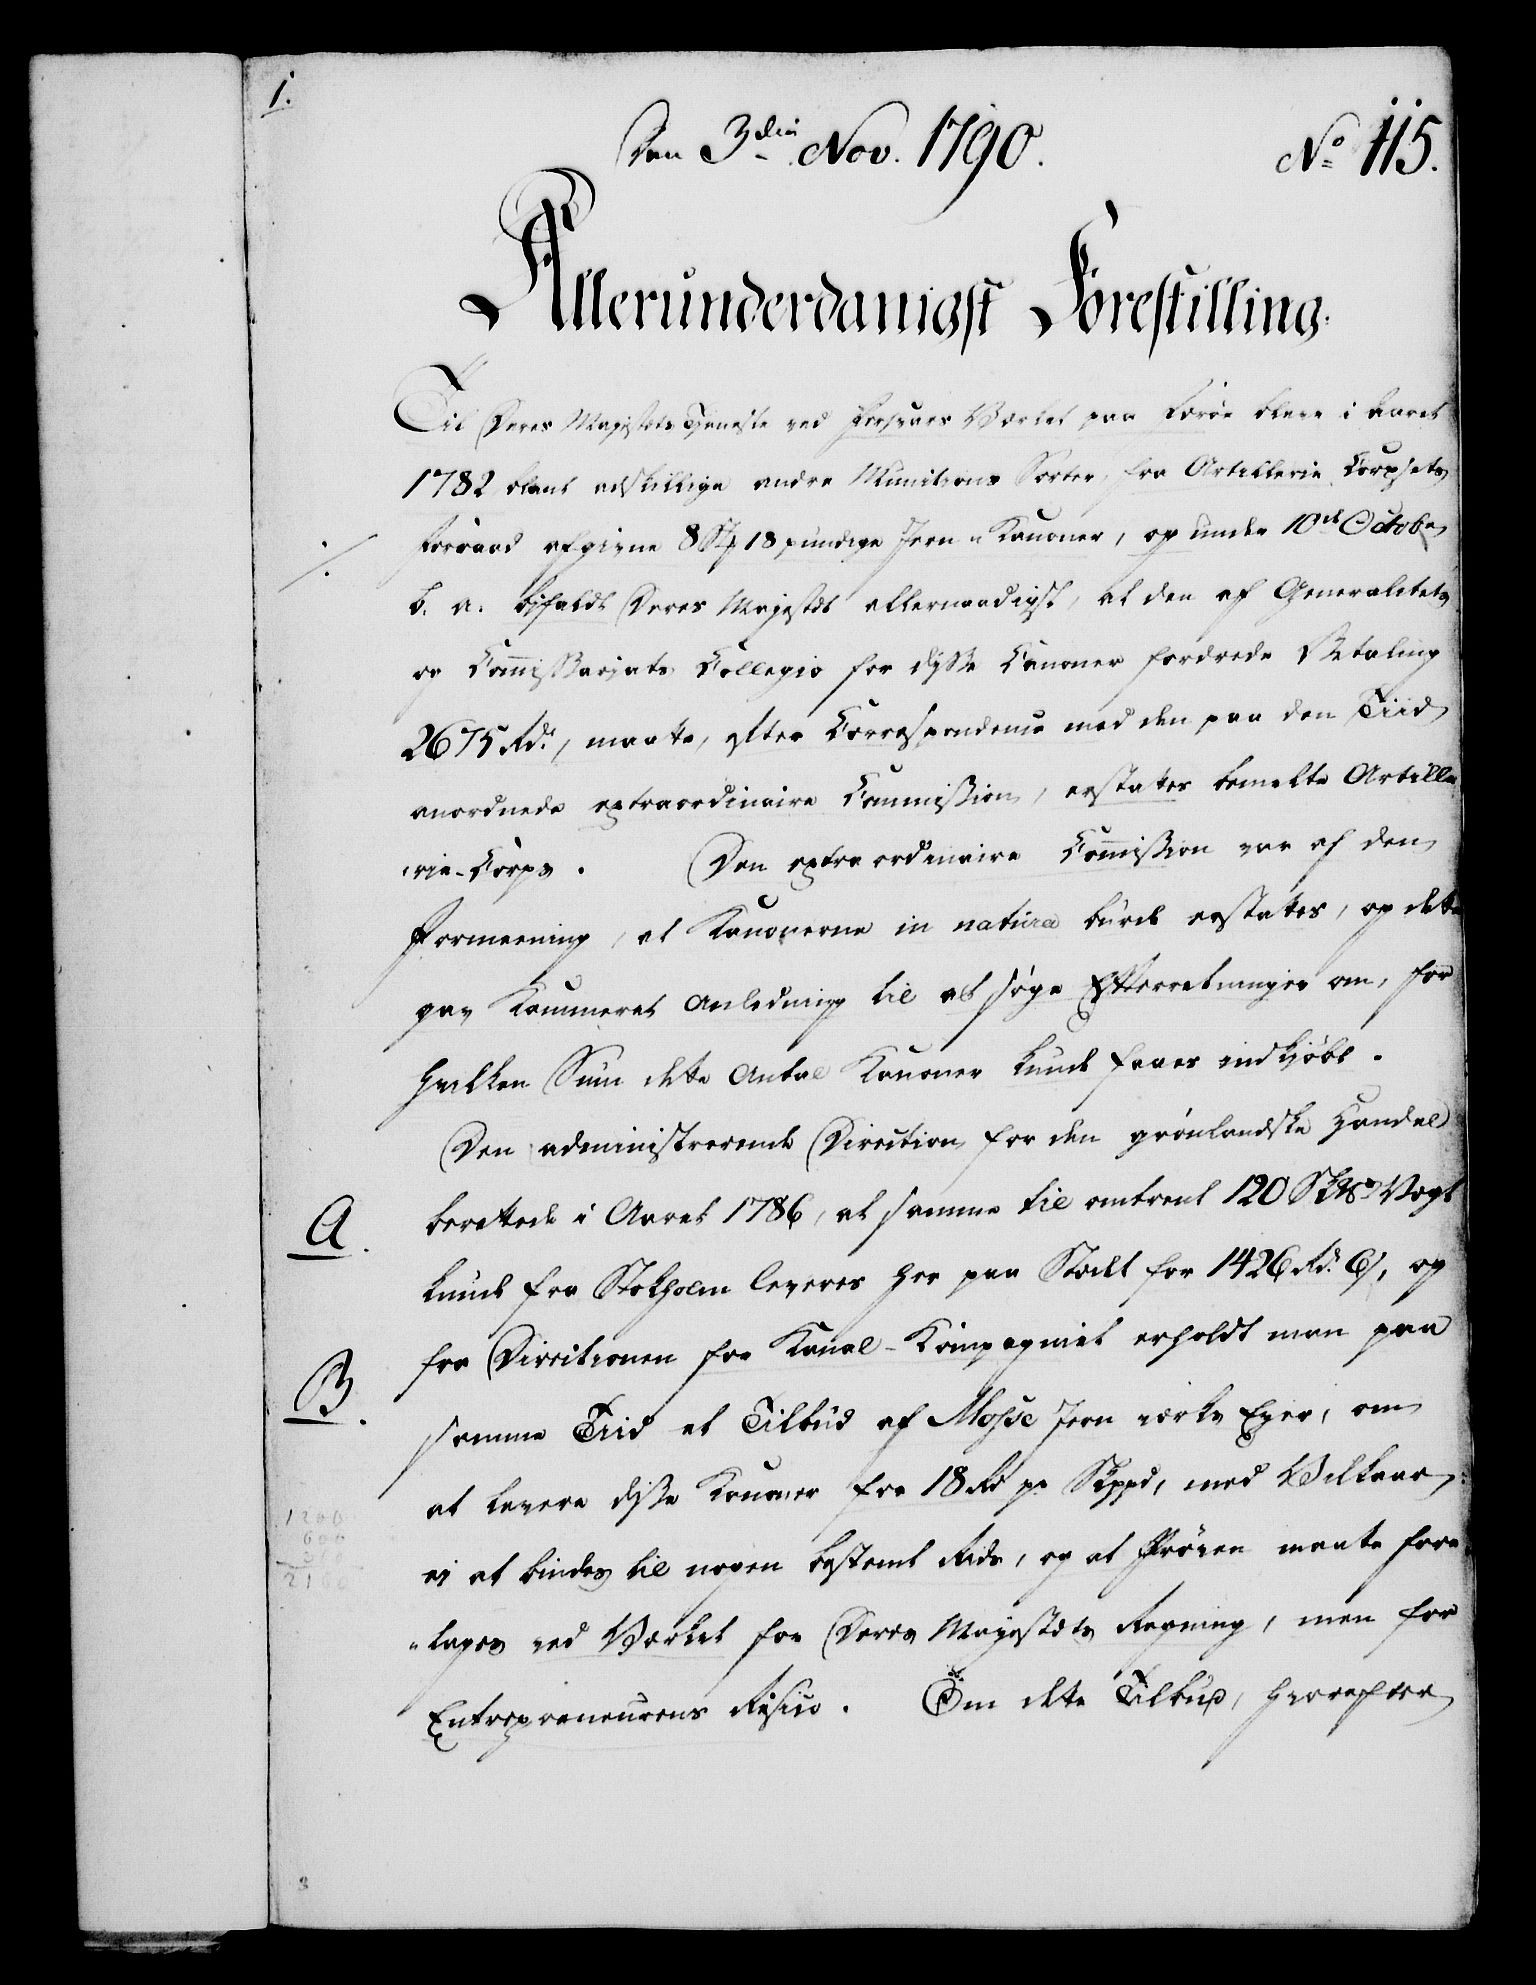 1.
Den 3die Nov. 1790. No 115.
Allerunderdanigst Forestilling.
Til Deres Majestets Tjeneste ved Forsvars Værket paa Færøe bleve i Aaret
1782 blant adskillige andre Munitions Sorter, fra Artillerie Corpsets
Forraad afgivne 8 St. 18 pundige Jern-Kanoner, og under 10de Octob.
s. A. bifaldt Deres Majestet allernaadigst, at den af Generalitets
og Commissariats Collegio for disse Canoner fordrede Betaling
2675 Rd., maate, efter Correspondence med den paa den Tiid
anordnede extraordinaire Commission, erstattes bemelte Artille
rie-Corps. Den extraordinaire Commission var af den
Formeening, at Kanonerne in natura burde erstattes, og dette
gav Kammeret Anledning til at søge Efterretninger om, for
hvilken Sum dette Antal Kanoner kunde faaes indkjøbt.
Den administrerende Direction for den grønlandske Handel
A. berettede i Aaret 1786, at samme til omtrent 120 Vægt
kunde fra Stokholm leveres her paa Stædet for 1426 Rd. 6 s, og
B. fra Directionen for Kanal-Kompagniet erholdt man paa
samme Tiid et Tilbud af Mosse Jernværks Eyer, om
at levere disse Kanoner for 18 Rd pr Skppd, med Vilkaar:
ei at bindes til nogen bestemt Tide, og at Prøven maate fore
tages ved Værket for Deres Majestets Regning, men for
Entrepreneurens Risico. Om dette Tilbud, hvorefter
1200
600
300
2100